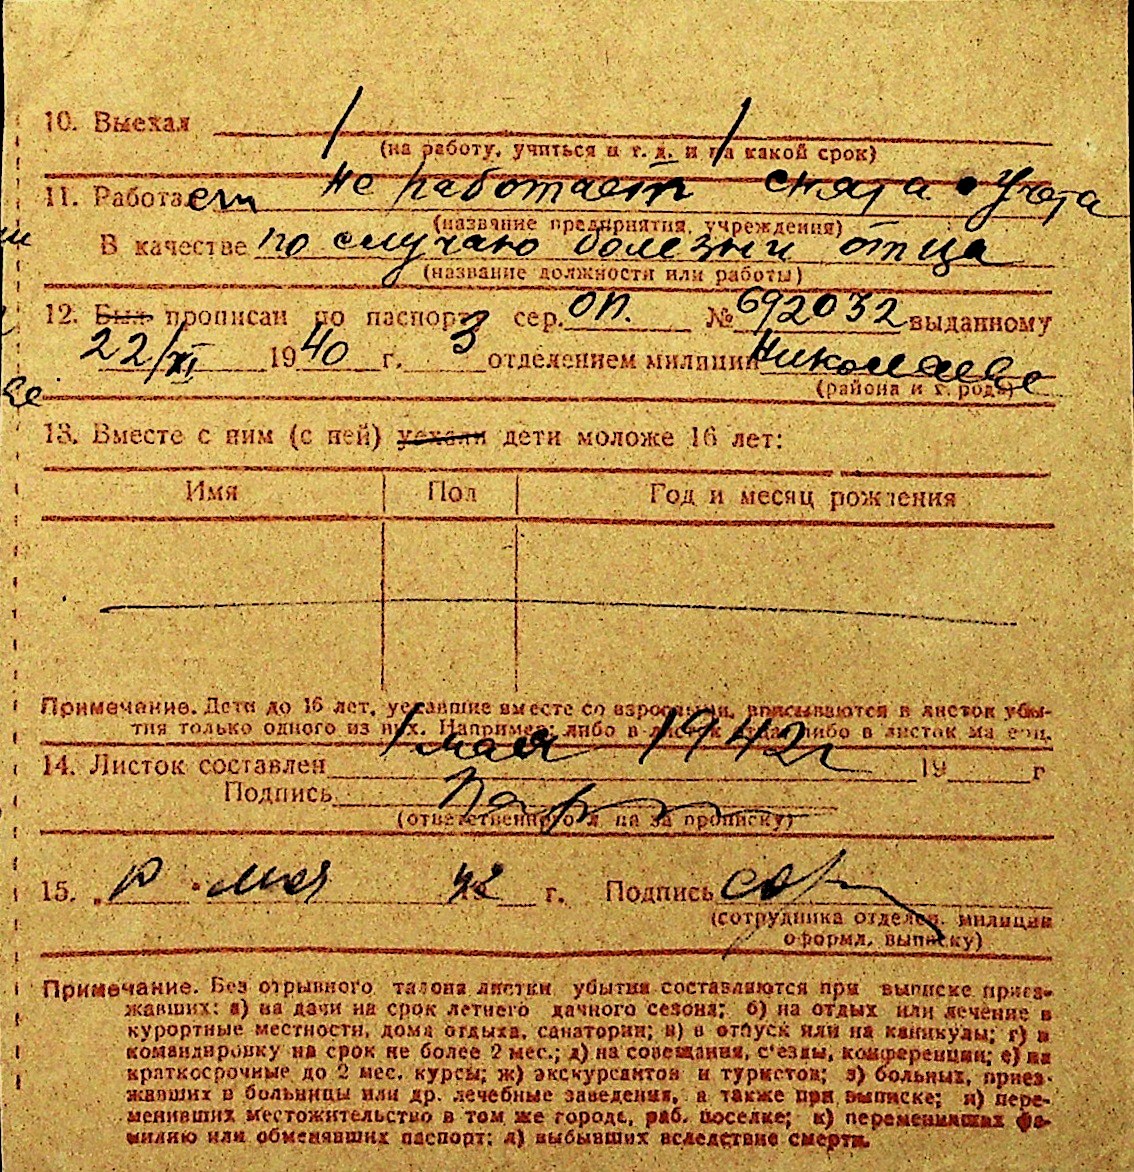 10. Выехал
(на работу, учиться и т. д. и на какой срок)
не работает снята с учета
11. Работает
(название предприятия, учреждения)
В качестве по случаю болезни отца
(название должности или работы)
12. Был прописан по паспорту сер. ОП. № 692032 выданному
22/XI 1940 г. 3 отделением милиции Николаеве
(района и города)
13. Вместе с ним (с ней) уехали дети моложе 16 лет:
Имя Пол Год и месяц рождения
Примечание. Дети до 16 лет, уехавшие вместе со взрослыми, вписываются в листок убы-
тия только одного из них. Например: либо в листок отца, либо в листок матери.
1 мая 1942 г
14. Листок составлен 19 г
Подпись
(ответственного л. ца за прописку)
15. " " мая 42 г. Подпись
(сотрудника отделен. милиции
оформл. выписку)
Примечание. Без отрывного талона листки убытия составляются при выписке приез-
жавших: а) на дачи на срок летнего дачного сезона; б) на отдых или лечение в
курортные местности, дома отдыха, санатории; в) в отпуск или на каникулы; г) в
командировку на срок не более 2 мес.; д) на совещания, с'езды, конференции; е) на
краткосрочные до 2 мес. курсы; ж) экскурсантов и туристов; з) больных, приез-
жавших в больницы или др. лечебные заведения, а также при выписке; и) пере-
менивших местожительство в том же городе, раб. поселке; к) переменивших фа-
милию или обменявших паспорт; л) выбывших вследствие смерти.